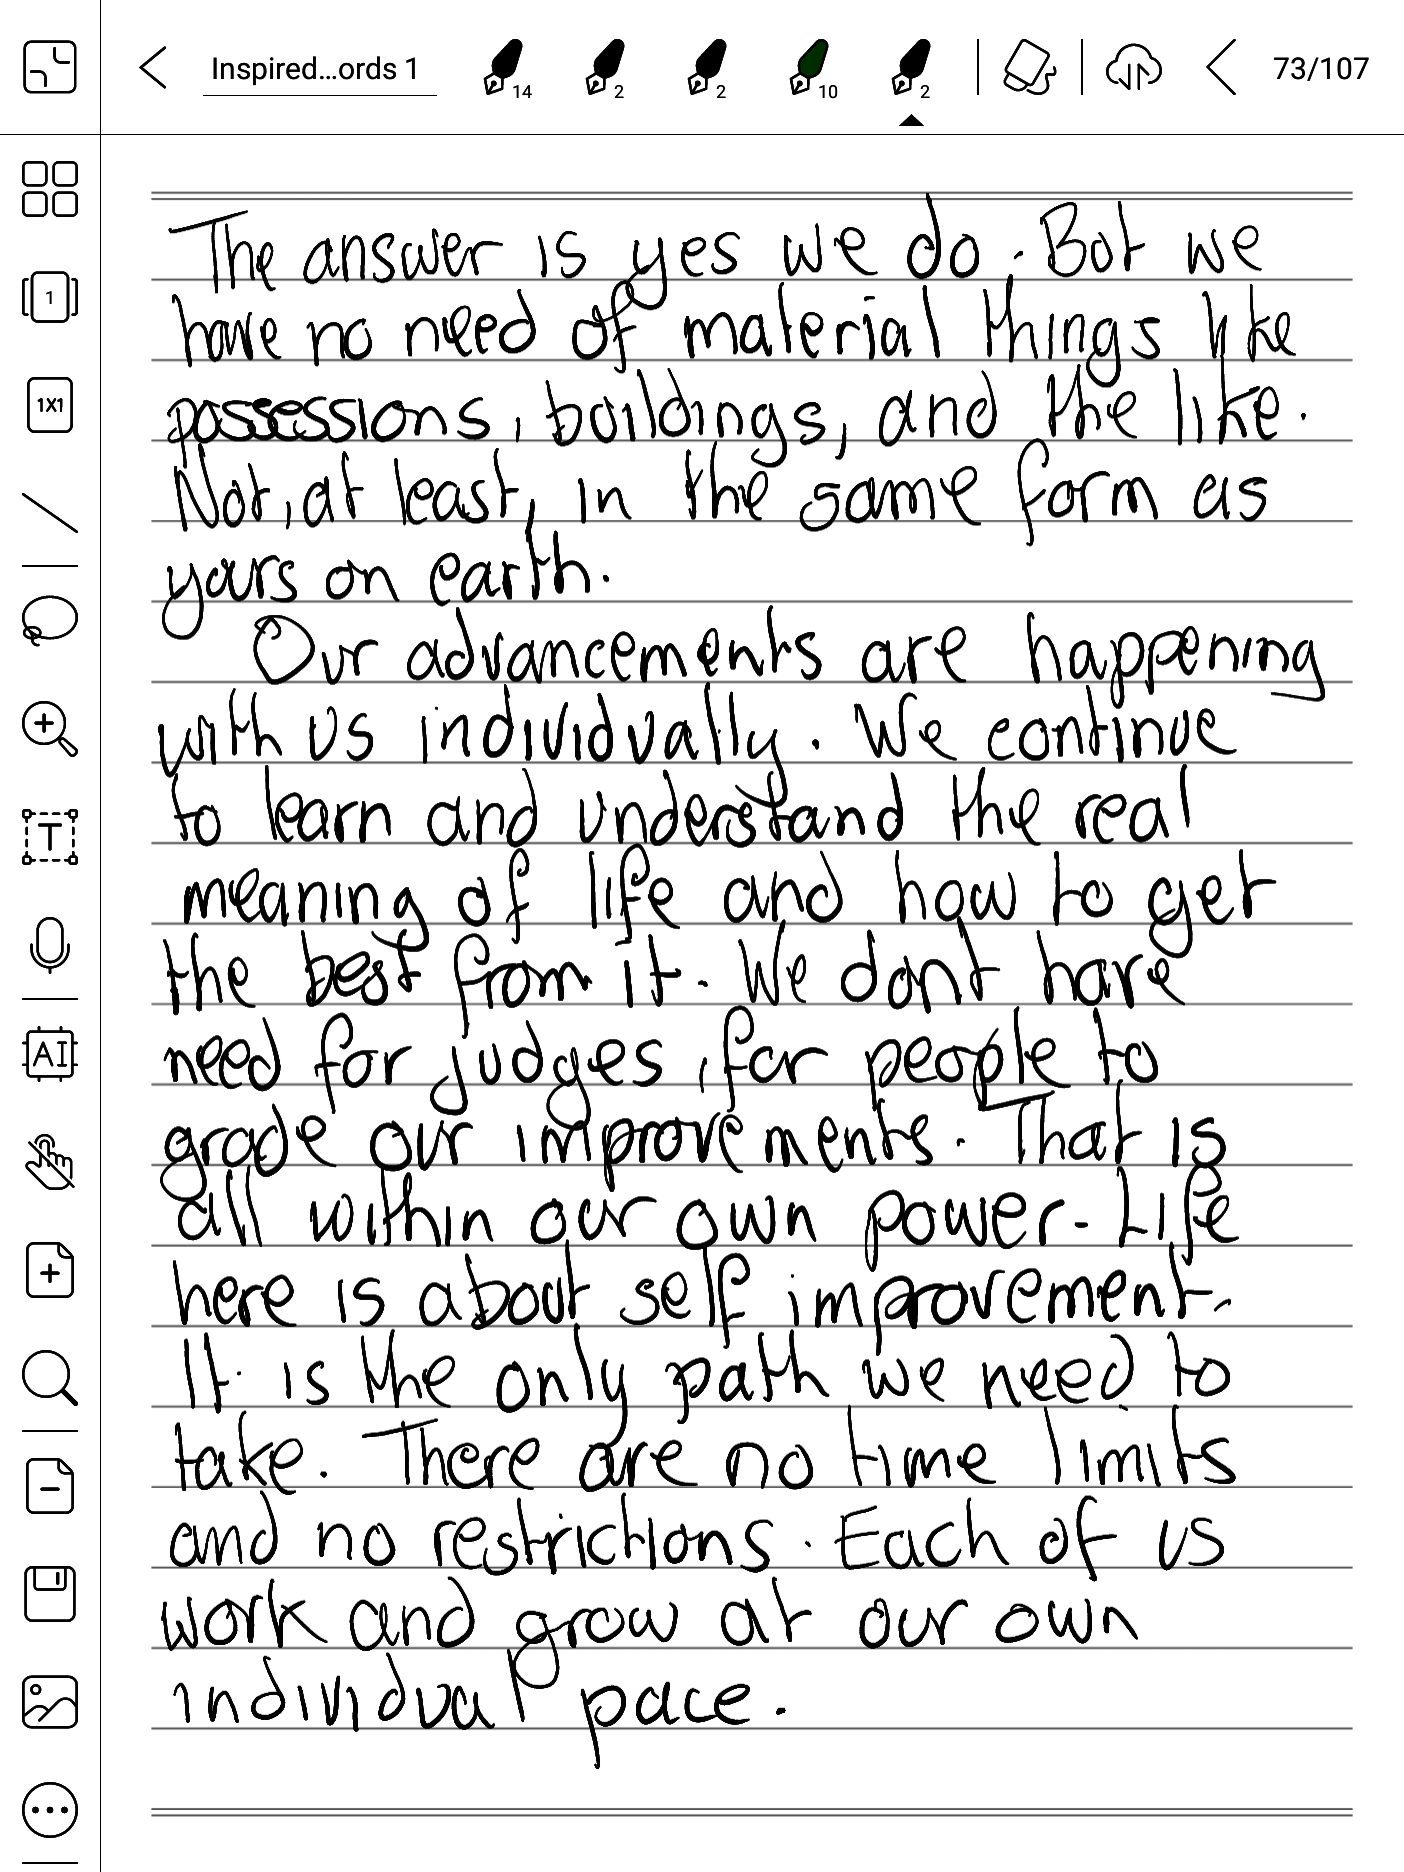 Inspired...ords 1
14
2
2
10
2
73/107
1
1X1
T
AI
The answer is yes we do. But we
have no need of material things like
possessions, buildings, and the like.
Not, at least, in the same form as
yours on earth.
Our advancements are happening
with us individually. We continue
to learn and understand the real
meaning of life and how to get
the best from it. We dont have
need for judges, for people to
grade our improvements. That is
all within our own power. Life
here is about self improvement.
It is the only path we need to
take. There are no time limits
and no restrictions. Each of us
work and grow at our own
individual pace.